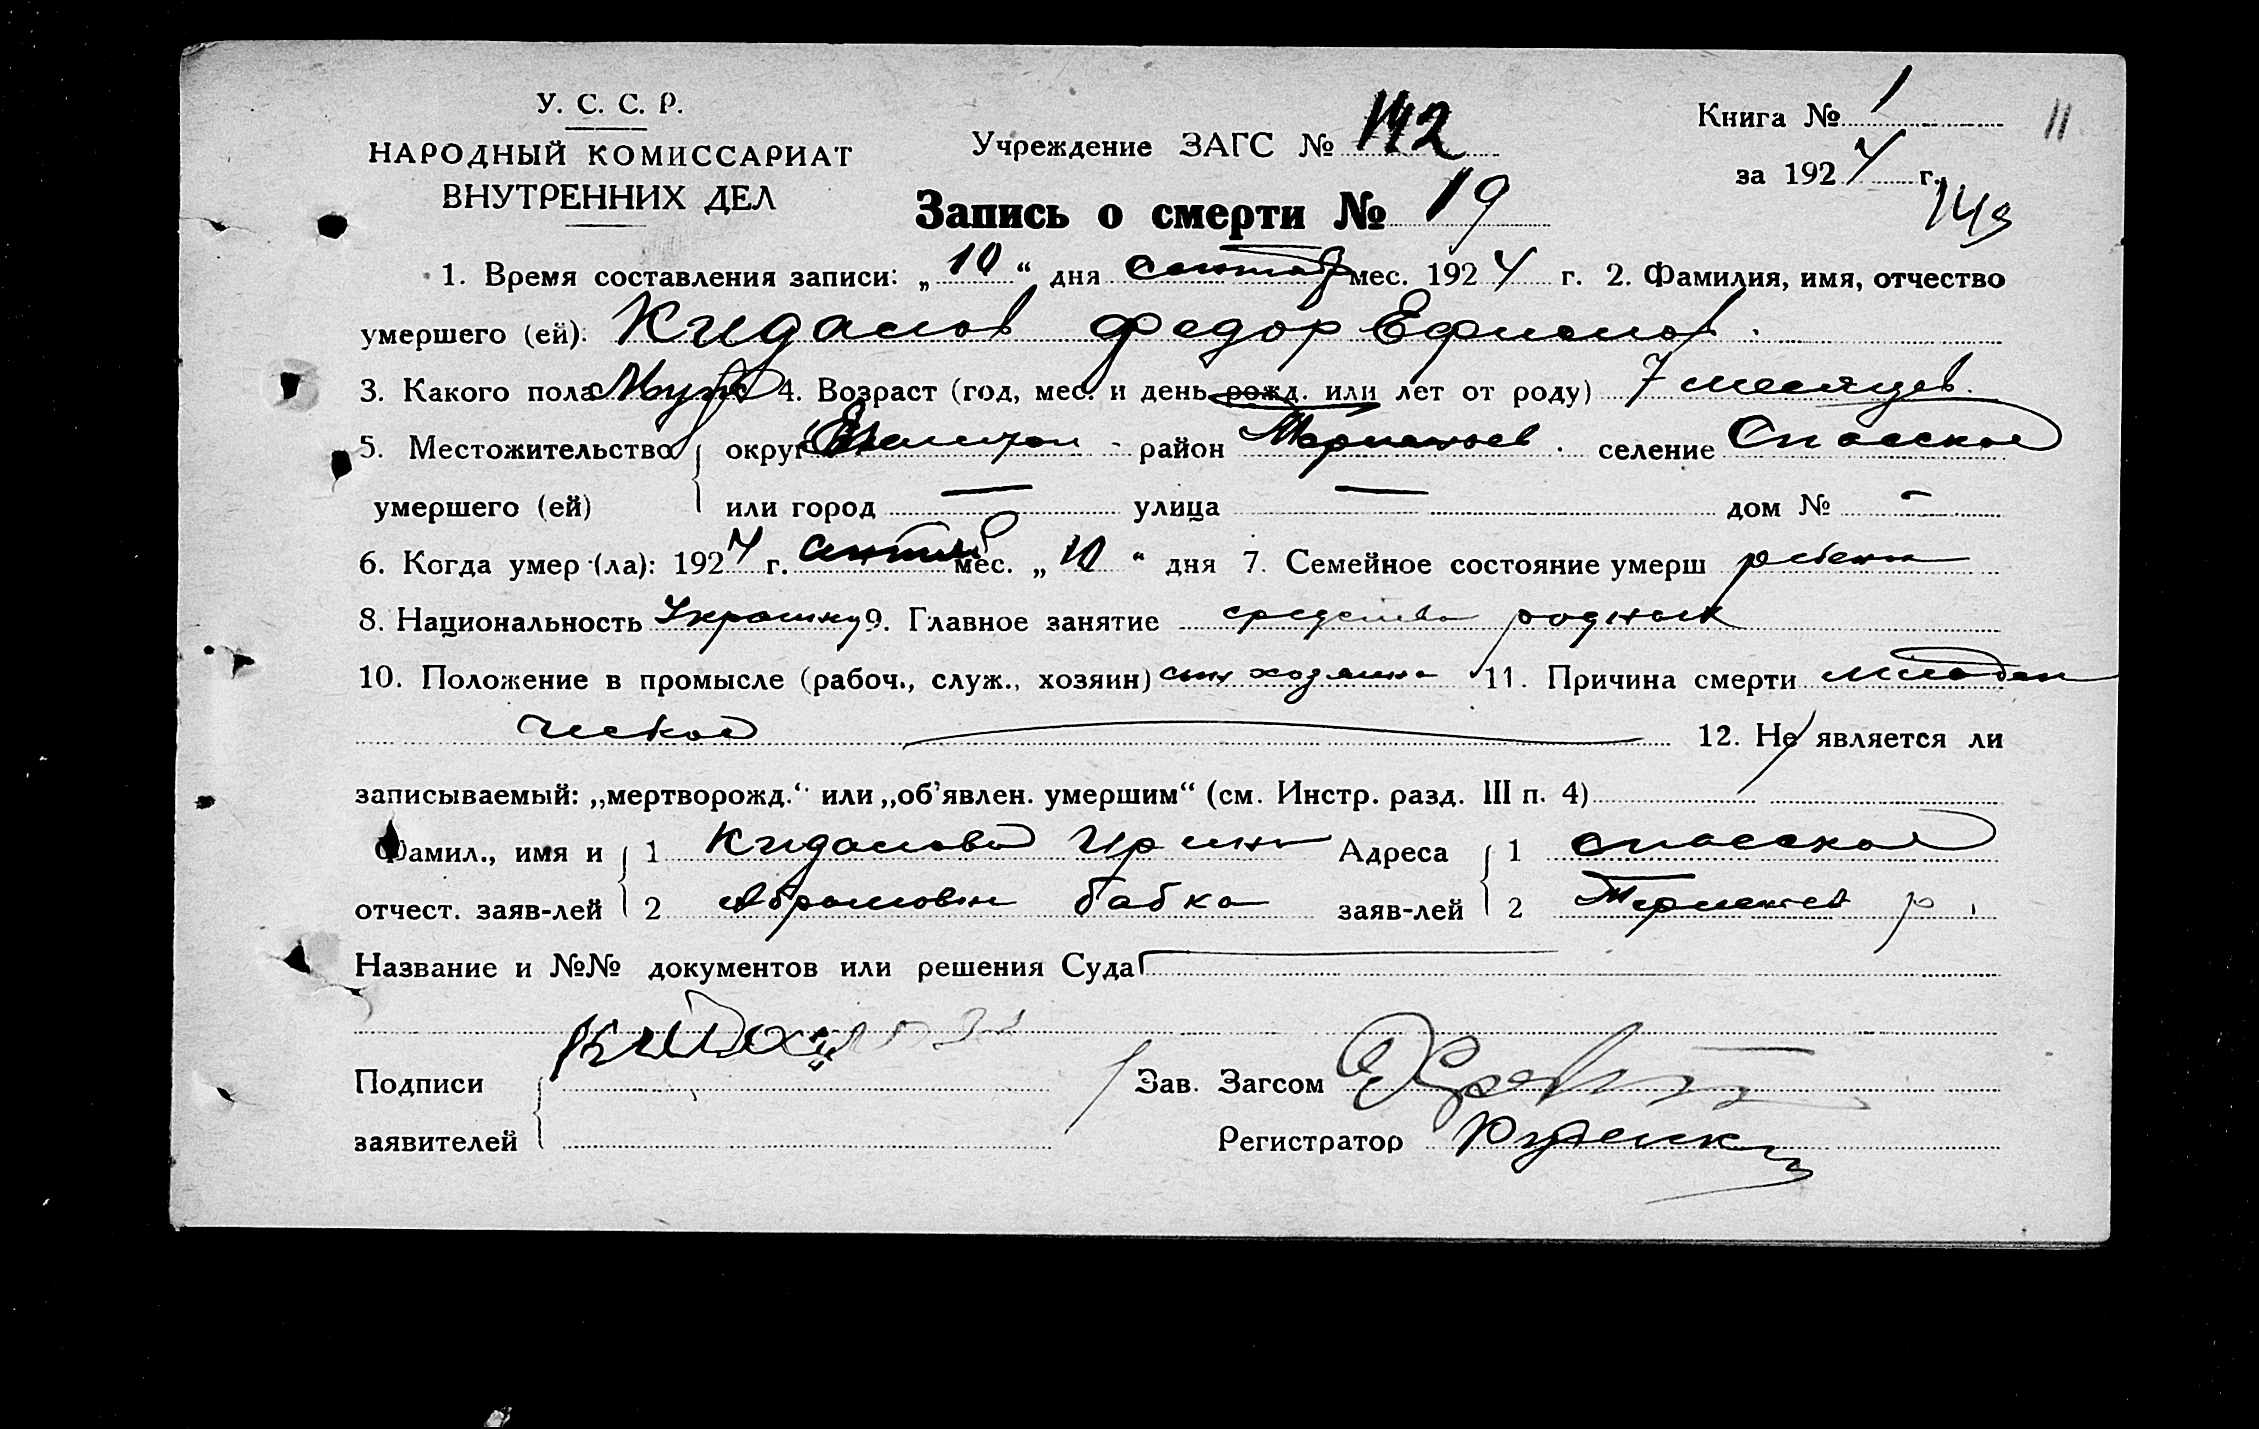 У. С. С. Р.
НАРОДНЫЙ КОМИССАРИАТ
ВНУТРЕННИХ ДЕЛ
Учреждение ЗАГС № 142
Книга № 1
11
за 1924 г.
143
Запись о смерти № 19
1. Время составления записи: „10“ дня сентяб мес. 1924 г. 2. Фамилия, имя, отчество
умершего (ей): Кидалов Федор Ефимов
3. Какого пола Муж 4. Возраст (год, мес. и день рожд. или лет от роду) 7 месяцев.
5. Местожительство округ район селение Спасское
умершего (ей) или город — улица — дом № —
6. Когда умер (ла): 1924 г. мес. „10“ дня 7. Семейное состояние умерш ребенок
8. Национальность 9. Главное занятие средства родных
10. Положение в промысле (рабоч., служ., хозяин) сын хозяина 11. Причина смерти младен
ческое 12. Не является ли
записываемый: „мертворожд.“ или „об’явлен. умершим“ (см. Инстр. разд. III п. 4)
Фамил., имя и 1 Кидалова Ирина Адреса 1 Спасское
отчест. заяв-лей 2 Абрамовн бабка заяв-лей 2 р.
Название и №№ документов или решения Суда
Подписи Зав. Загсом
заявителей Регистратор